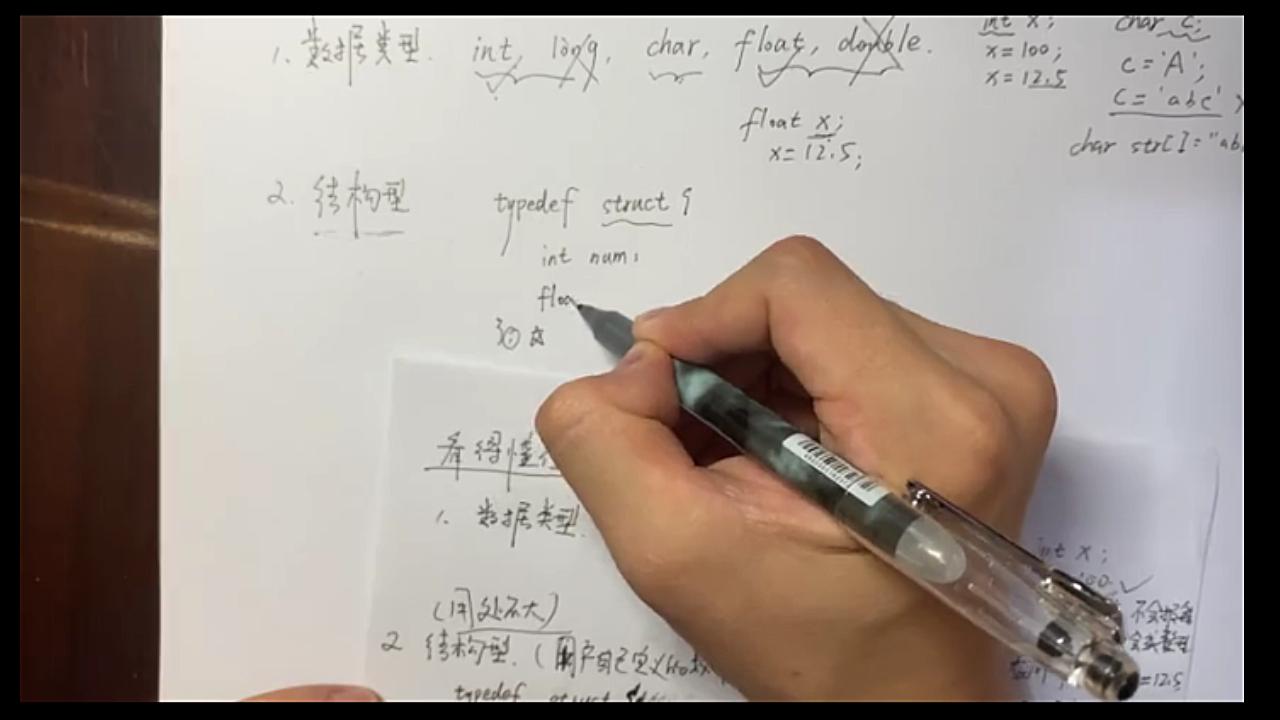 1. 数据类型. int, long, char, float, double.
int x;
x=100;
x=12.5
char c;
c='A';
c='abc' ×
char str[]="ab
float x;
x=12.5;
2. 结构型
typedef struct {
int num;
floa
};
看得懂
1. 数据类型.
int x;
(用处不大)
不会报错
2 结构型. (用户自己定义的数
=12.5
typedef struct {